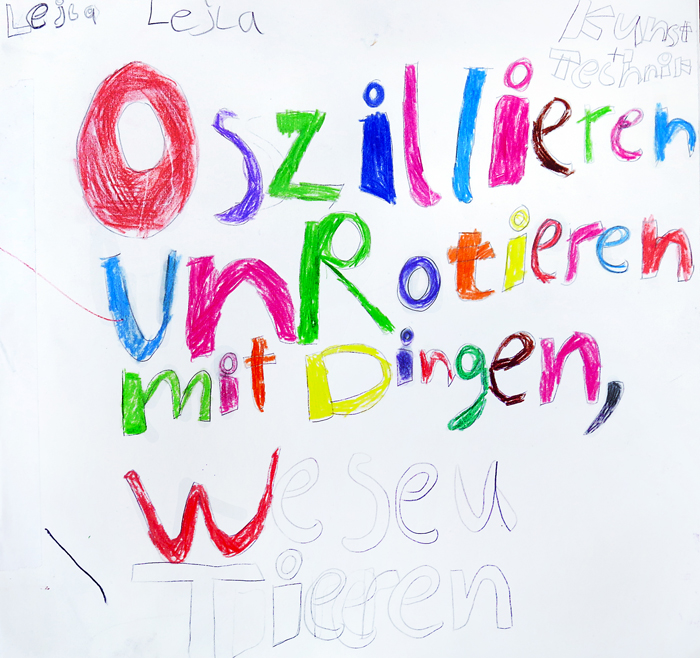 Lejla Lejla
Kunst
+
Technik
Oszillieren
un Rotieren
mit Dingen,
Weseu
Tieren